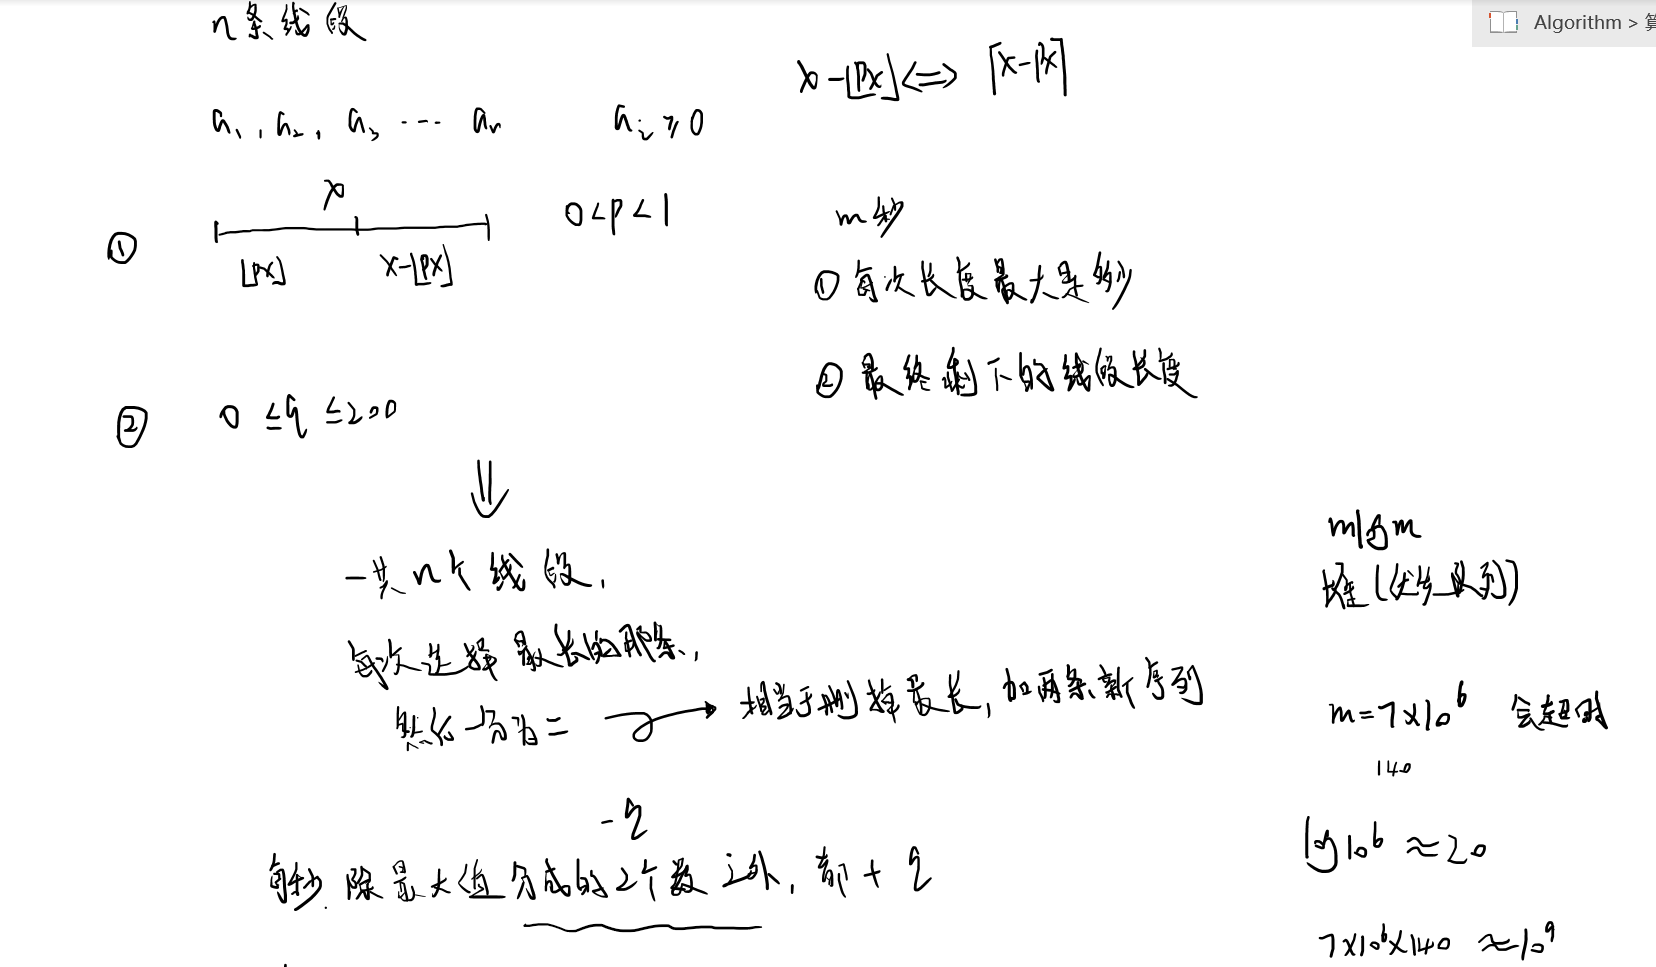 Algorithm > 算
n条线段
x-⌊px⌋⟺⌈x-px⌉
a₁, a₂, a₃ ⋯ aₙ aᵢ≥0
x
① ⌊px⌋ x-⌊px⌋ 0<p<1
m秒
①每次长度最大是多少
②最终剩下的线段长度
② 0≤q≤200
⇓
一共n个线段,
每次选择最长的那条,
然后一分为二 → 相当于删掉最长,加两条新序列
-q
每秒.除最大值分成的2个数之外,都+q
mlogm
堆(优先队列)
m=7×10⁶ 会超时
140
log10⁶≈20
7×10⁶×140≈10⁹